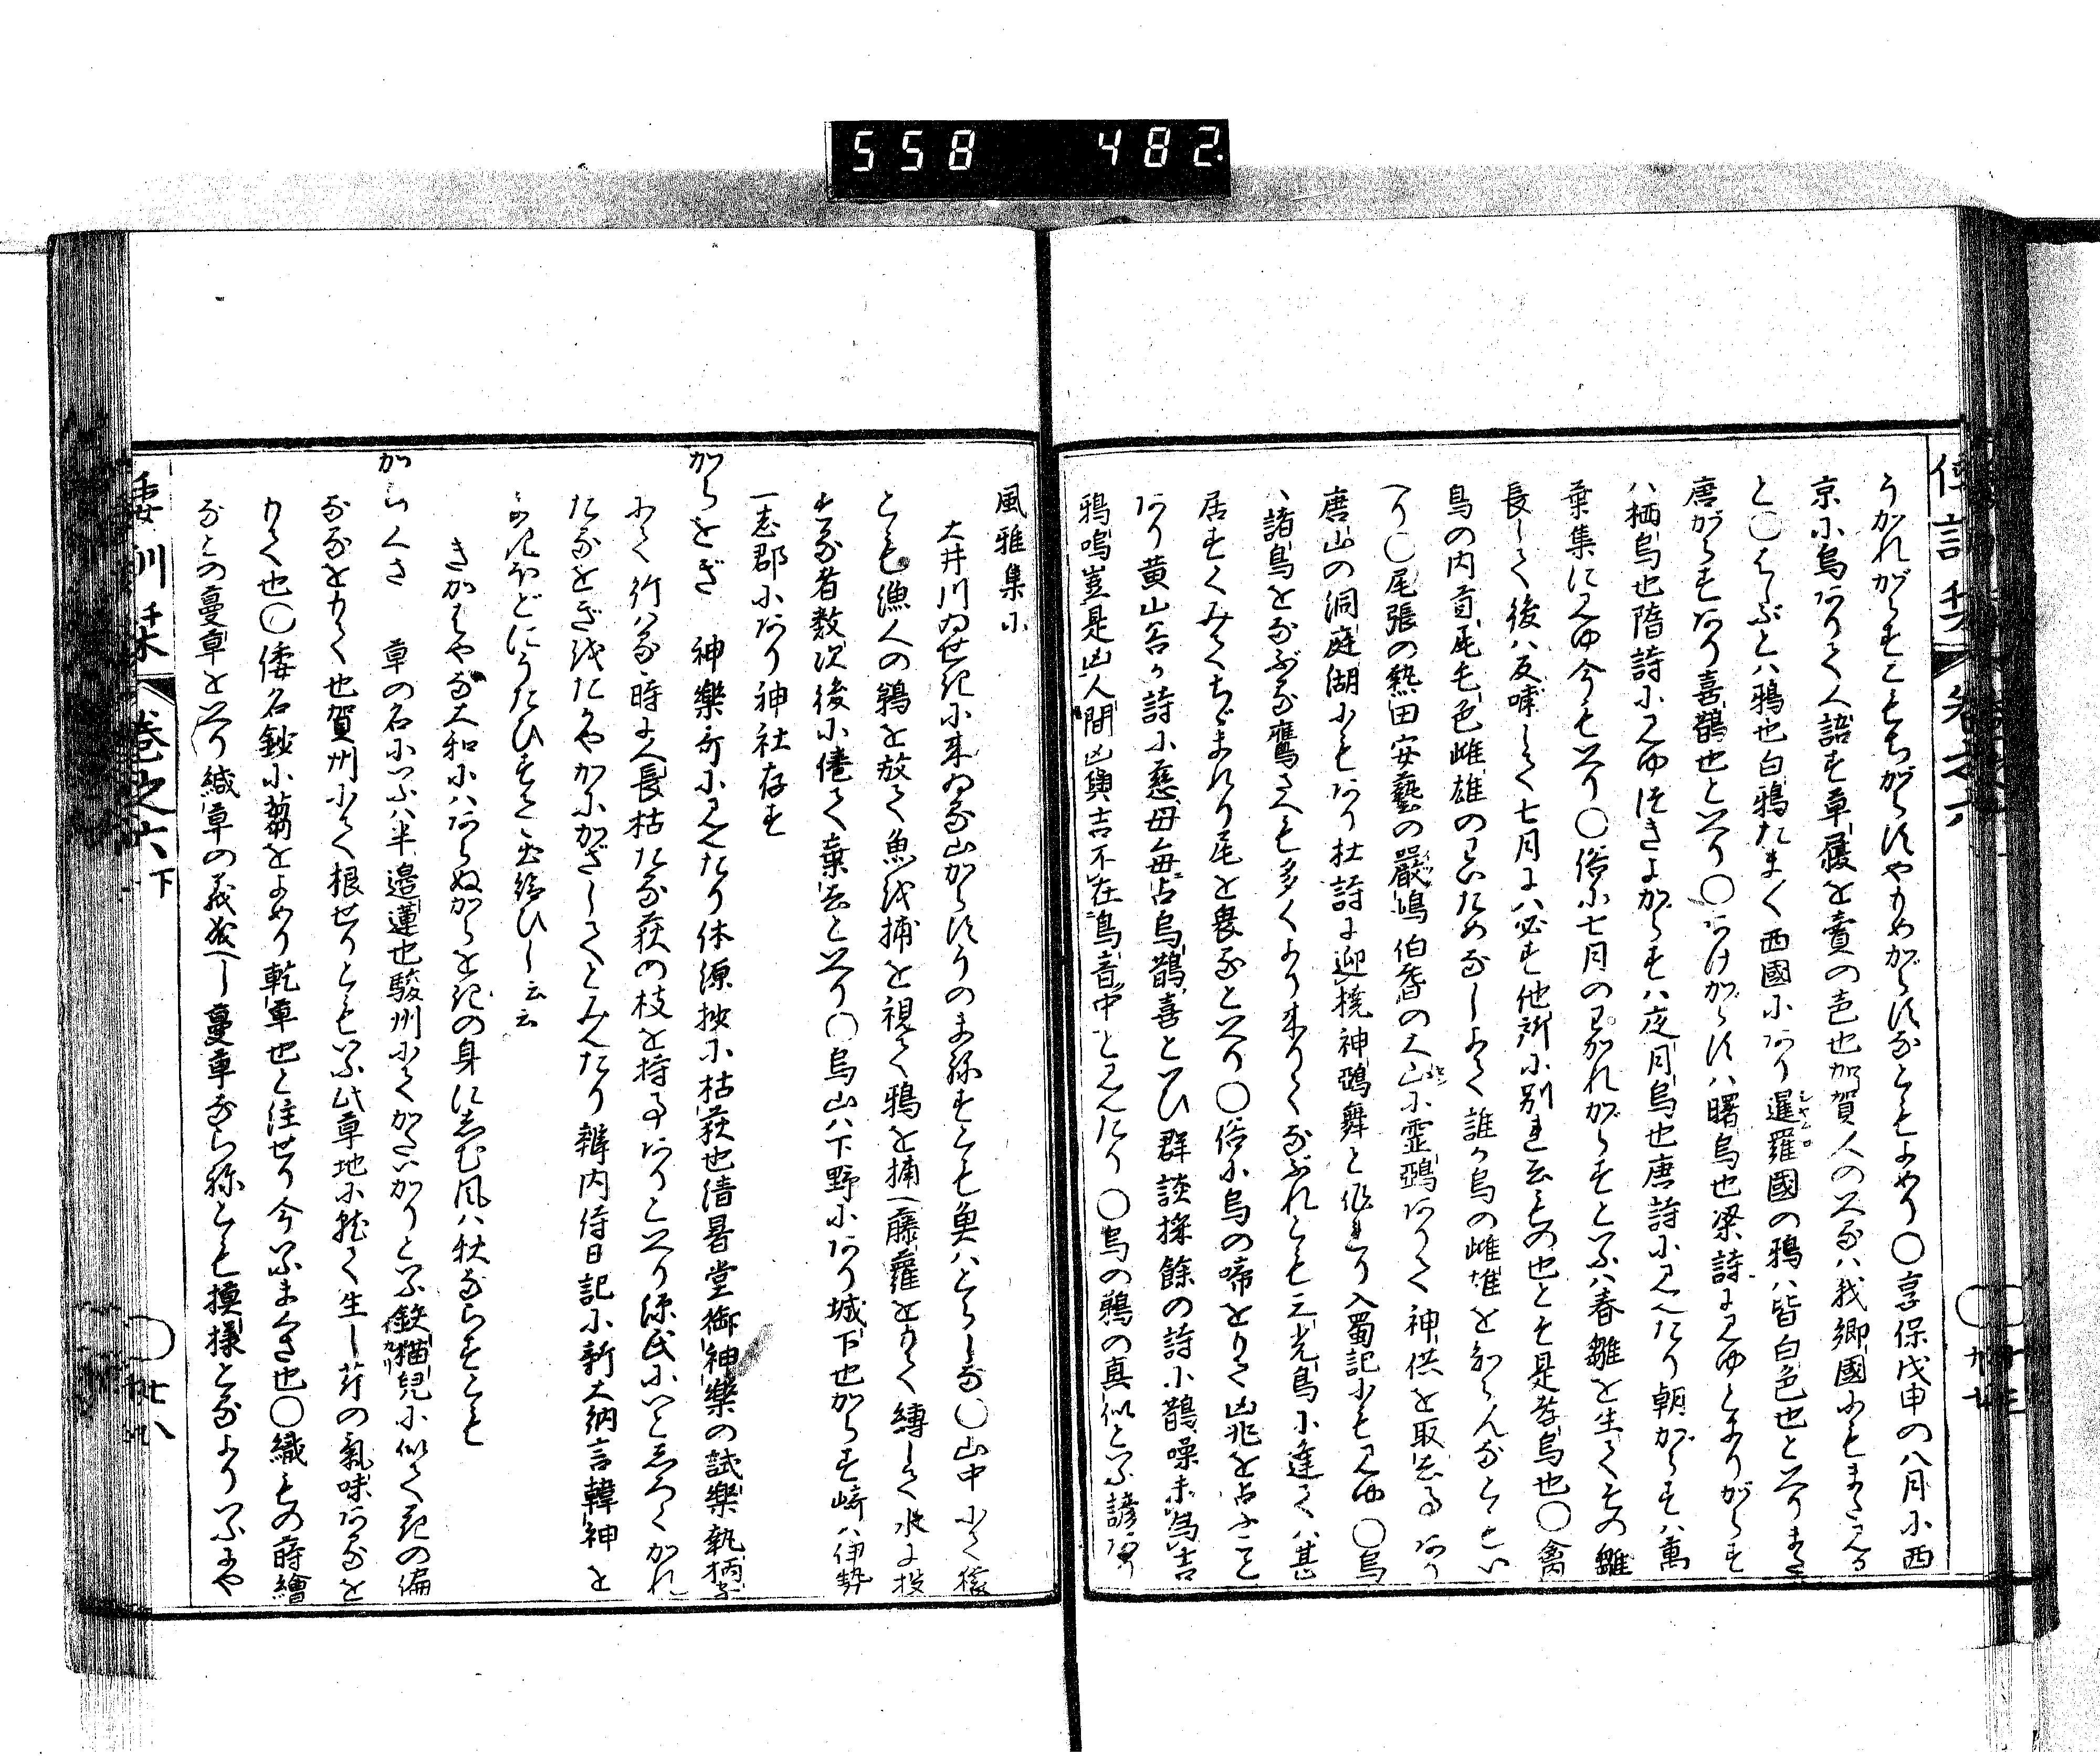 558 482
うかれがらすこもちがらすやもめがらすなともよめり〇享保戊申の八月に西
京に烏ありて人語す草履を賣の色也加賀人の
と〇はしぶとハ鴉也白鴉たまく西國にあり暹羅國の鴉ハ皆白色也といへり
唐がらすあり喜鵲也といへり〇あけがらすハ曙烏也梁詩に見ゆとまりがらす
ハ栖烏也隋詩に見ゆつきよがらすハ夜月烏也唐詩に見えたり朝がらすハ萬
葉集に見ゆ今もいへり〇俗に七月のわかれがらすといふハ春雛を生てその雛
長して後ハ反哺して七月にハ必す他所に別れ去もの也とそ是孝烏也〇禽
鳥の内首尾毛色雌雄のわいためなしよて誰か烏の雌雄をしらんなともい
へり〇尾張の熱田安藝の嚴嶋伯耆の大山に霊鵶ありて神供を取去る事あり
唐山の洞庭湖にもあり杜詩に迎擾神鵶舞と作れり入蜀記にも見ゆ〇烏
ハ諸鳥をなぶる鷹さへも多くより来りてなぶれとも三光鳥に逢てハ甚
居すくみてちゞまれり尾を襲るといへり〇俗に烏の啼をりて凶兆を占ふこと
あり黄山谷か詩に慈母毎占烏鵲喜といひ群談採餘の詩に鵲噪未為吉
鴉鳴豈是凶人間凶與吉不在鳥音中と見えたり〇烏の鵜の真似といふ諺あり
風雅集に
大井川ゐせきに来ゐる山からすうのまねすとも魚ハとらしな〇山中にて猿
とも漁人の鵜を放て魚を捕を視て鴉を捕へ藤蘿をもて縛して水に投
する者数次後に倦て棄去といへり〇烏山ハ下野にあり城下也からす崎ハ伊勢
一志郡にあり神社存す
からをぎ 神樂哥に見えたり体源抄に枯荻也清暑堂御神樂の試樂執柄家
にて行ハる時に人長枯たる荻の枝を持事ありといへり源氏にいとしろくかれ
たるをぎをたかやかにかざしてとみえたり辨内侍日記に新大納言韓神を
うたひすて出給ひし云云
きかはやな大和にハあらぬからをぎの身にしむ風ハ秋ならすとも
からくさ 草の名にいふハ半邉蓮也駿州にてかさいがりといふ
なるをもて也賀州にて根せりともいふ此草地に就て生し芹の氣味あるを
もて也〇倭名鈔に蒭をよめり乾草也と注せり今いふまくさ也〇織もの蒔繪
なとの蔓草をいへり緘草の義成へし蔓草ならねとも摸様とるよりいふにや
倭訓栞 巻之六下